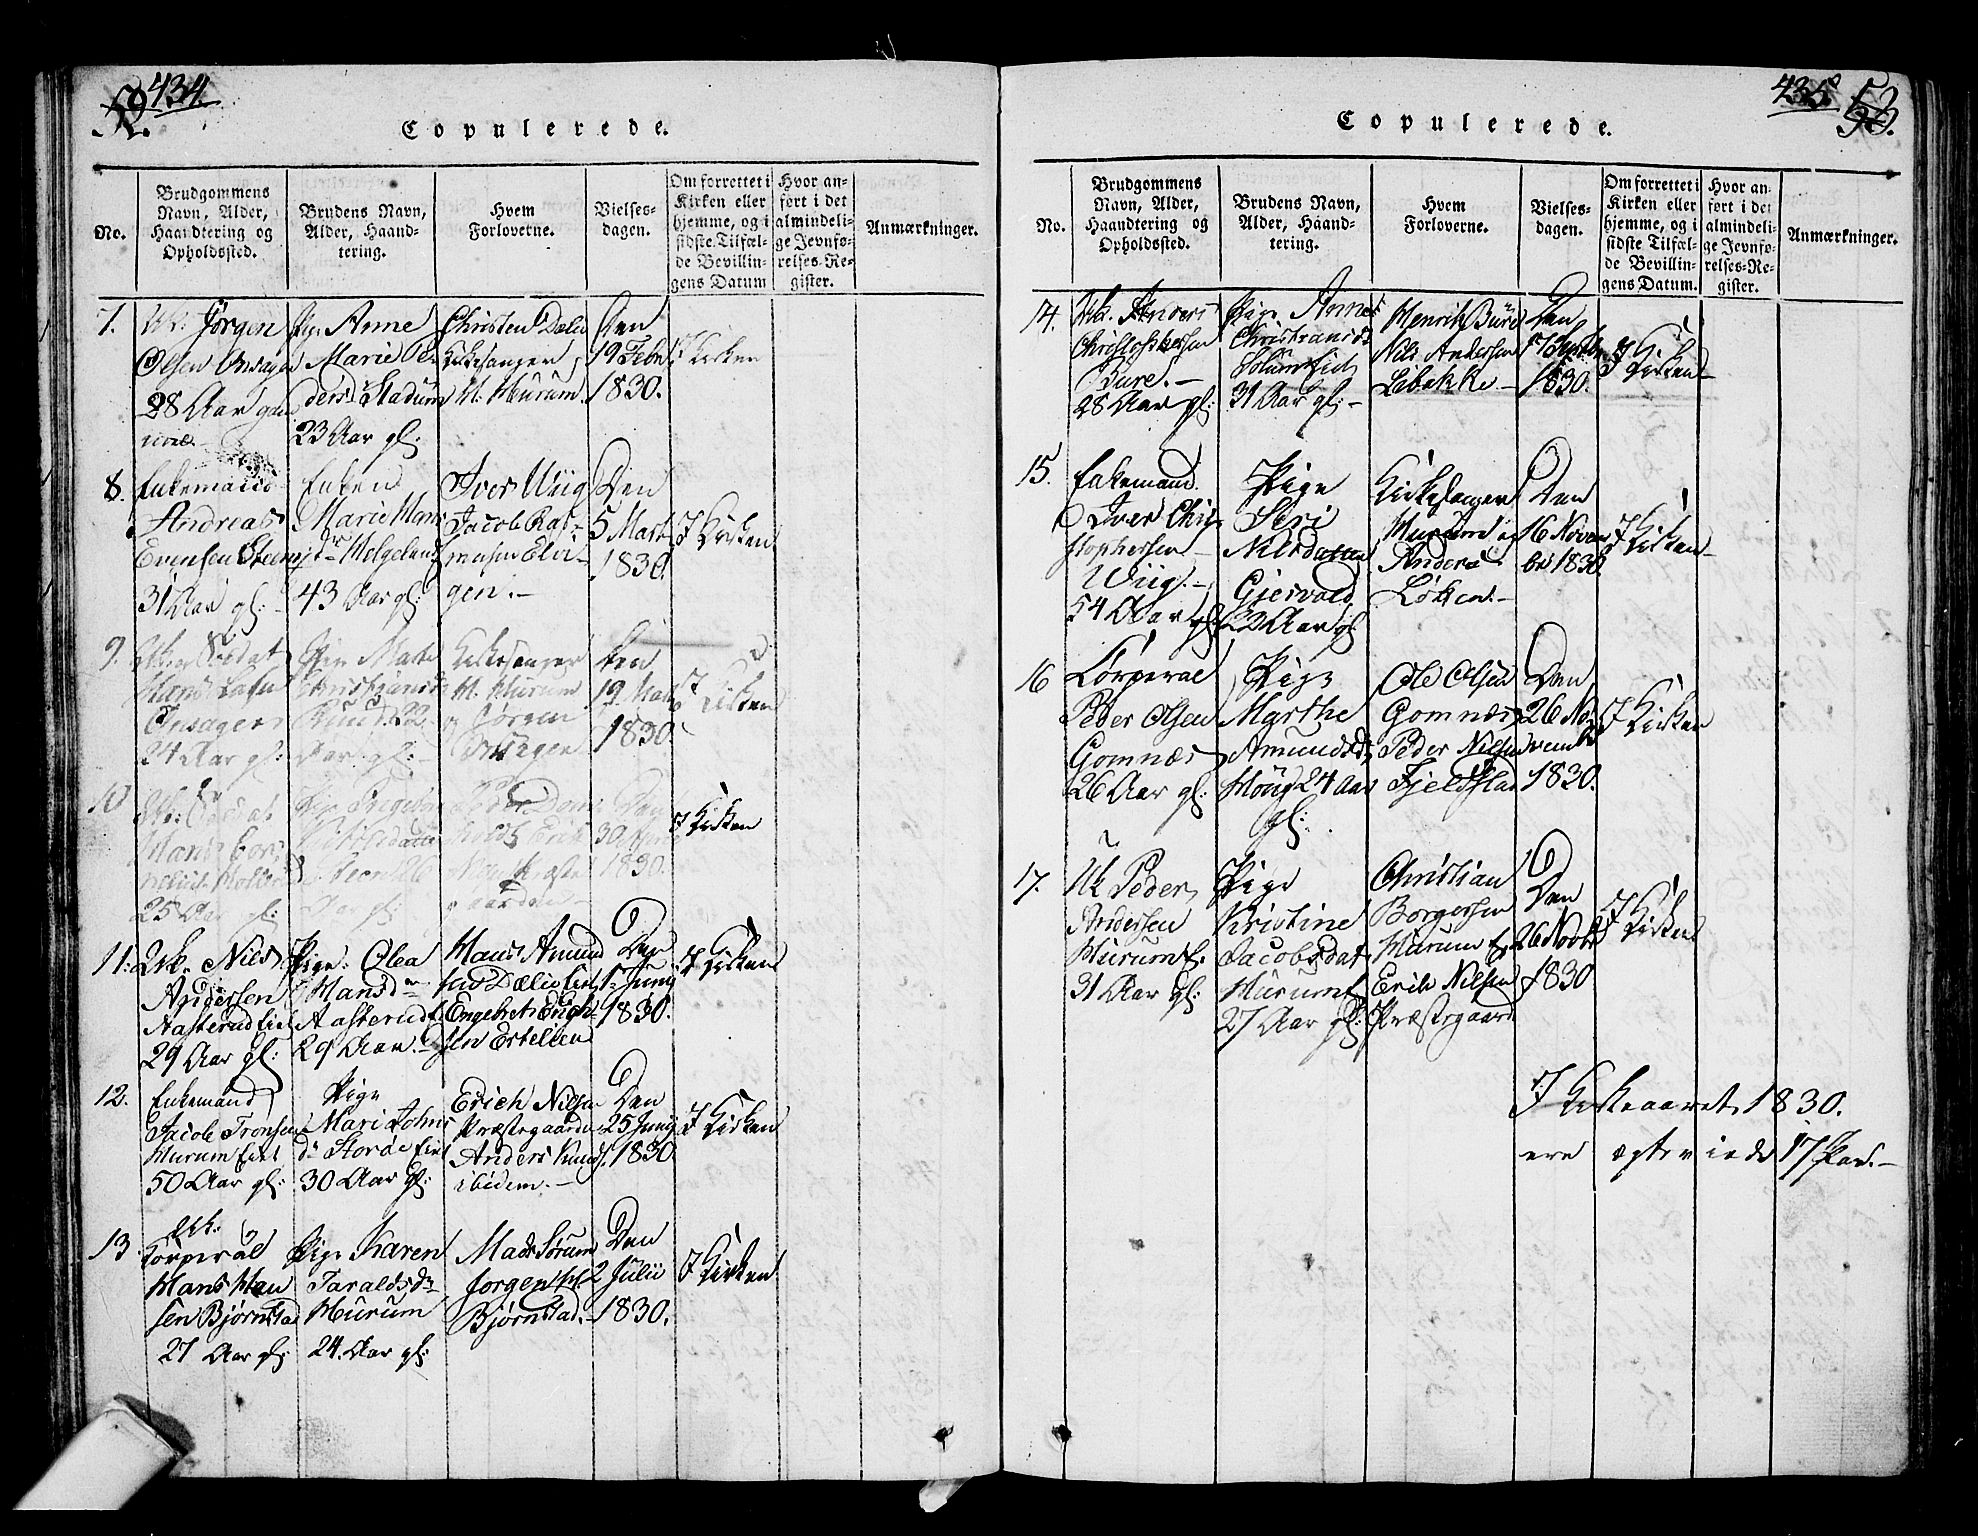 434
52.
Copulerede.
No.
Brudgommens
Navn, Alder,
Haandtering og
Opholdssted.
Brudens Navn,
Alder, Haand-
tering.
Hvem
Forloverne.
Vielses-
dagen.
Om forrettet i
Kirken eller
hjemme, og i
sidste Tilfæl-
de Bevillin-
gens Datum
Hvor an-
ført i det
almindeli-
ge Jevnfø-
relses-Re-
gister.
Anmærkninger.
7.
Uk: Jørgen
Olsen Onsager
28 Aar gam
Pige Anne
Marie Pe
ders Stadum
23 Aar gl:
Christen Dæli
Kirkesanger
H. Hurum
Den
19 Febr
1830.
I Kirken
8.
Enkemand
Andreas
Evensen Steen
31 Aar gl:
Enken
Marie Hans
dr Helgeland
43 Aar gl:
Iver Wiig
Jacob Ras-
musen Elvi-
gen.-
Den
5 Marts
1830.
I Kirken
9.
Uk og Soldat
Hans Larsen
Onsager
24 Aar gl:
Pige Marte
Christiansd.
Ruud 22
Aar gl:
Kirkesanger
H. Hurum
og Jørgen
Onsager
Den
19 Marts
1830
I Kirken
10
Uk: Soldat
Hans
25 Aar gl:
Pige Ingeborg
Steen 26
Aar gl:
Peder
Erik
Præste
gaarden
Den
30 April
1830.
I Kirken
11.
Uk. Niels
Andersen
Aasterud Eiet
29 Aar gl:
Pige: Olea
Hansdr
Aasterud E.
29 Aar.-
Hans Amund
sen Dælie Eiet
Engebret Erich-
sen Estelien
Den
1 Juny
1830.
I Kirken
12.
Enkemand
Jacob Tronsen
Hurum Eiet
50 Aar gl:
Pige
Mari Johns
dr Storøe Eiet
30 Aar gl:
Erich Nilsen
Præstegaarden
Anders Knuds.
ibidem.-
Den
25 Juny
1830
I Kirken
13.
Uk.
Korperal
Hans Han
sen Bjørnstad
27 Aar gl:
Pige Karen
Taraldsdr
Hurum
24. Aar gl:
Mads Sørum
Jorgen H.
Bjørnstad.-
Den
2 Julii
1830.
I Kirken
435.
53.
Copulerede.
No.
Brudgommens
Navn, Alder,
Haandtering og
Opholdssted.
Brudens Navn,
Alder, Haand-
tering.
Hvem
Forloverne.
Vielses-
dagen.
Om forrettet i
Kirken eller
hjemme, og i
sidste Tilfæl-
de Bevillin-
gens Datum.
Hvor an-
ført i det
almindeli-
ge Jevnfø-
relses-Re-
gister.
Anmærkninger.
14.
Uk. Anders
Christophersen
Bure.-
28 Aar gl:
Pige Anne
Christiansd.
31 Aar gl:-
Henrik Bure
Nils Andersen
Libakke-
Den
1830.
I Kirken-
15.
Enkemand
Iver Chri-
stophersen-
Wiig.-
54 Aar gl:
Pige
Siri
Nilsdatter
Gjesvold
22 Aar gl
Kirkesanger
Hurum og
Anders
Løkken.-
Den
16 Novem
br 1830
I Kirken-
16
Corperal
Peder Olsen
Gomnæs
26 Aar gl:
Pige
Marthe
Amundsd.
Høug 24 Aar
gl:
Ole Olsen
Gomnæs
Peder Nilsen
Fjeldstad
Den
26 No-
vember
1830.
I Kirken
17.
Uk Peder
Andersen
Hurum E.
31 Aar gl:
Pige
Kristine
Jacobsdat
Hurum E
27 Aar gl:
Christian
Borgersen
Hurum E.
Erik Nilsen
Præstegaard
Den
26 Novbr
1830
I Kirken
I Kirkeaaret 1830.
ere ægteviede 17 Par.-